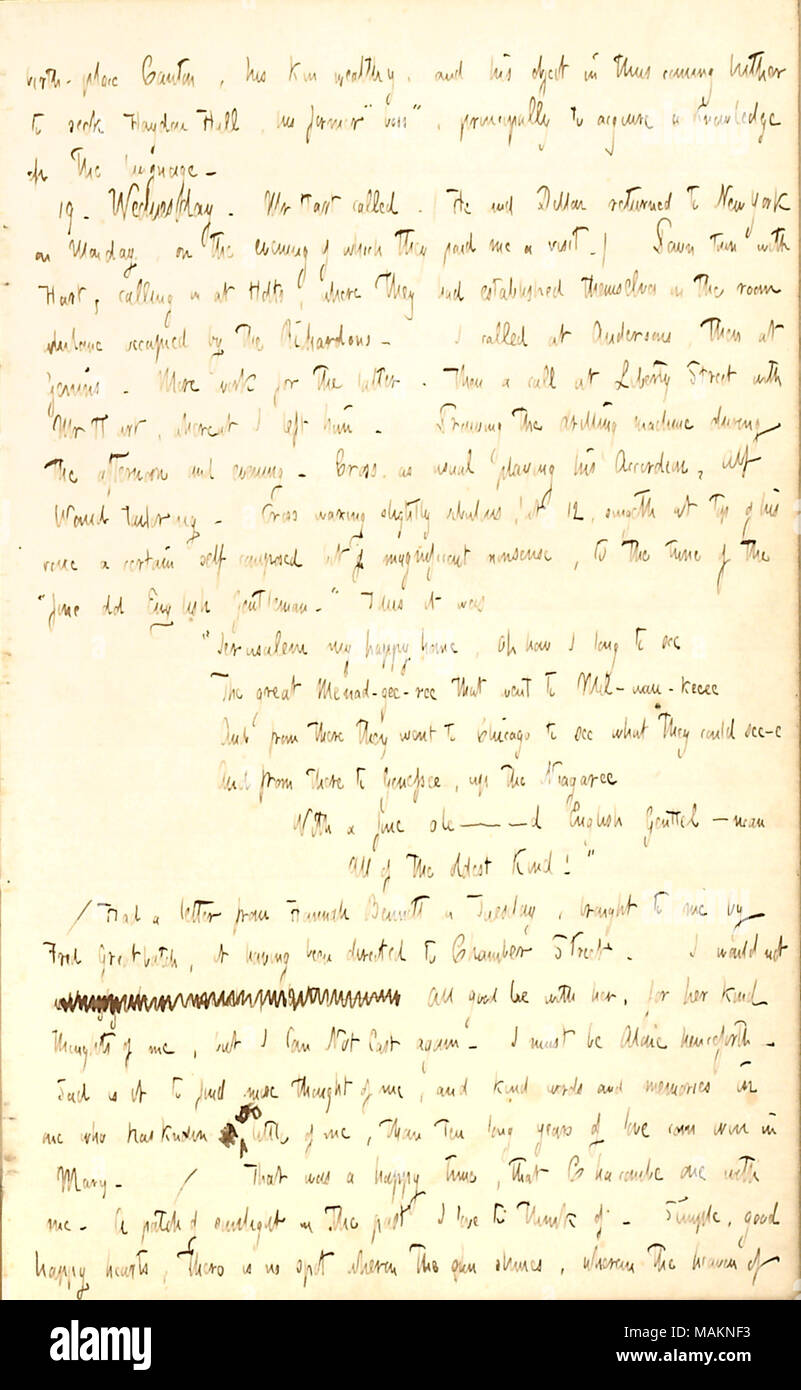 birth-place Canton, his kin wealthy, and his object in thus coming hither
to seek Haydon Hall, his former "boss", principally to acquire a knowledge
of the language_
19_ Wednesday_ Mr Hart called. / He and Dillon returned to New York
on Monday, on the evening of which they paid me a visit._/ Down town with
Hart, calling in at Holts, where they had established themselves in the room
occupied by the Richardsons_ I called at Andersons, then at
Genins_ More work for the latter. Then a call at Liberty Street with
Mr Hart, whereat I left him_ Drawing the drilling machine during
the afternoon and evening_ Cross, as usual playing his Accordion, Alf
Waud tailoring_ Cross waxing slightly ebulous at 12, singeth at top of his
voice a certain self composed bit of magnificent nonsense, to the tune of the
"fine old English Gentleman_" Thus it was
"Jerusalem my happy home, oh how I long to see
The great Menad-gee-ree that went to Mil-wau-keeee
And from there they went to Chicago to see what they could see-e
And from there to Genessee, up the Niagaree
With a fine ole———d English Genttel—man
All of the oldest kind!"
/ Had a letter from Hannah Bennett on Tuesday, brought to me by
Fred Greatbatch, it having been directed to Chamber Street. I would not
All good be with her, for her kind
thoughts of me, but I Can Not Cast again_ I must be Alone henceforth_
Sad is it to find more thought of me, and kind words and memories in
one who has known so little of me, than ten long years of love can win in
Mary_ / That was a happy time, that Chacombe one with
me_ A patch of sunlight in the past I love to think of_ Simple, good
happy hearts, there is no spot wheron the sun shines, wherein the heaven of
alamy
Image ID: MAKNF3
www.alamy.com